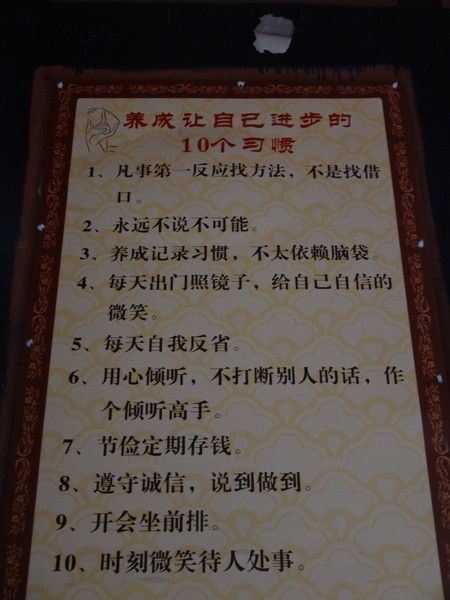 养成让自己进步的
10个习惯
1、凡事第一反应找方法，不是找借
口。
2、永远不说不可能。
3、养成记录习惯，不太依赖脑袋。
4、每天出门照镜子，给自己自信的
微笑。
5、每天自我反省。
6、用心倾听，不打断别人的话，作
个倾听高手。
7、节俭定期存钱。
8、遵守诚信，说到做到。
9、开会坐前排。
10、时刻微笑待人处事。